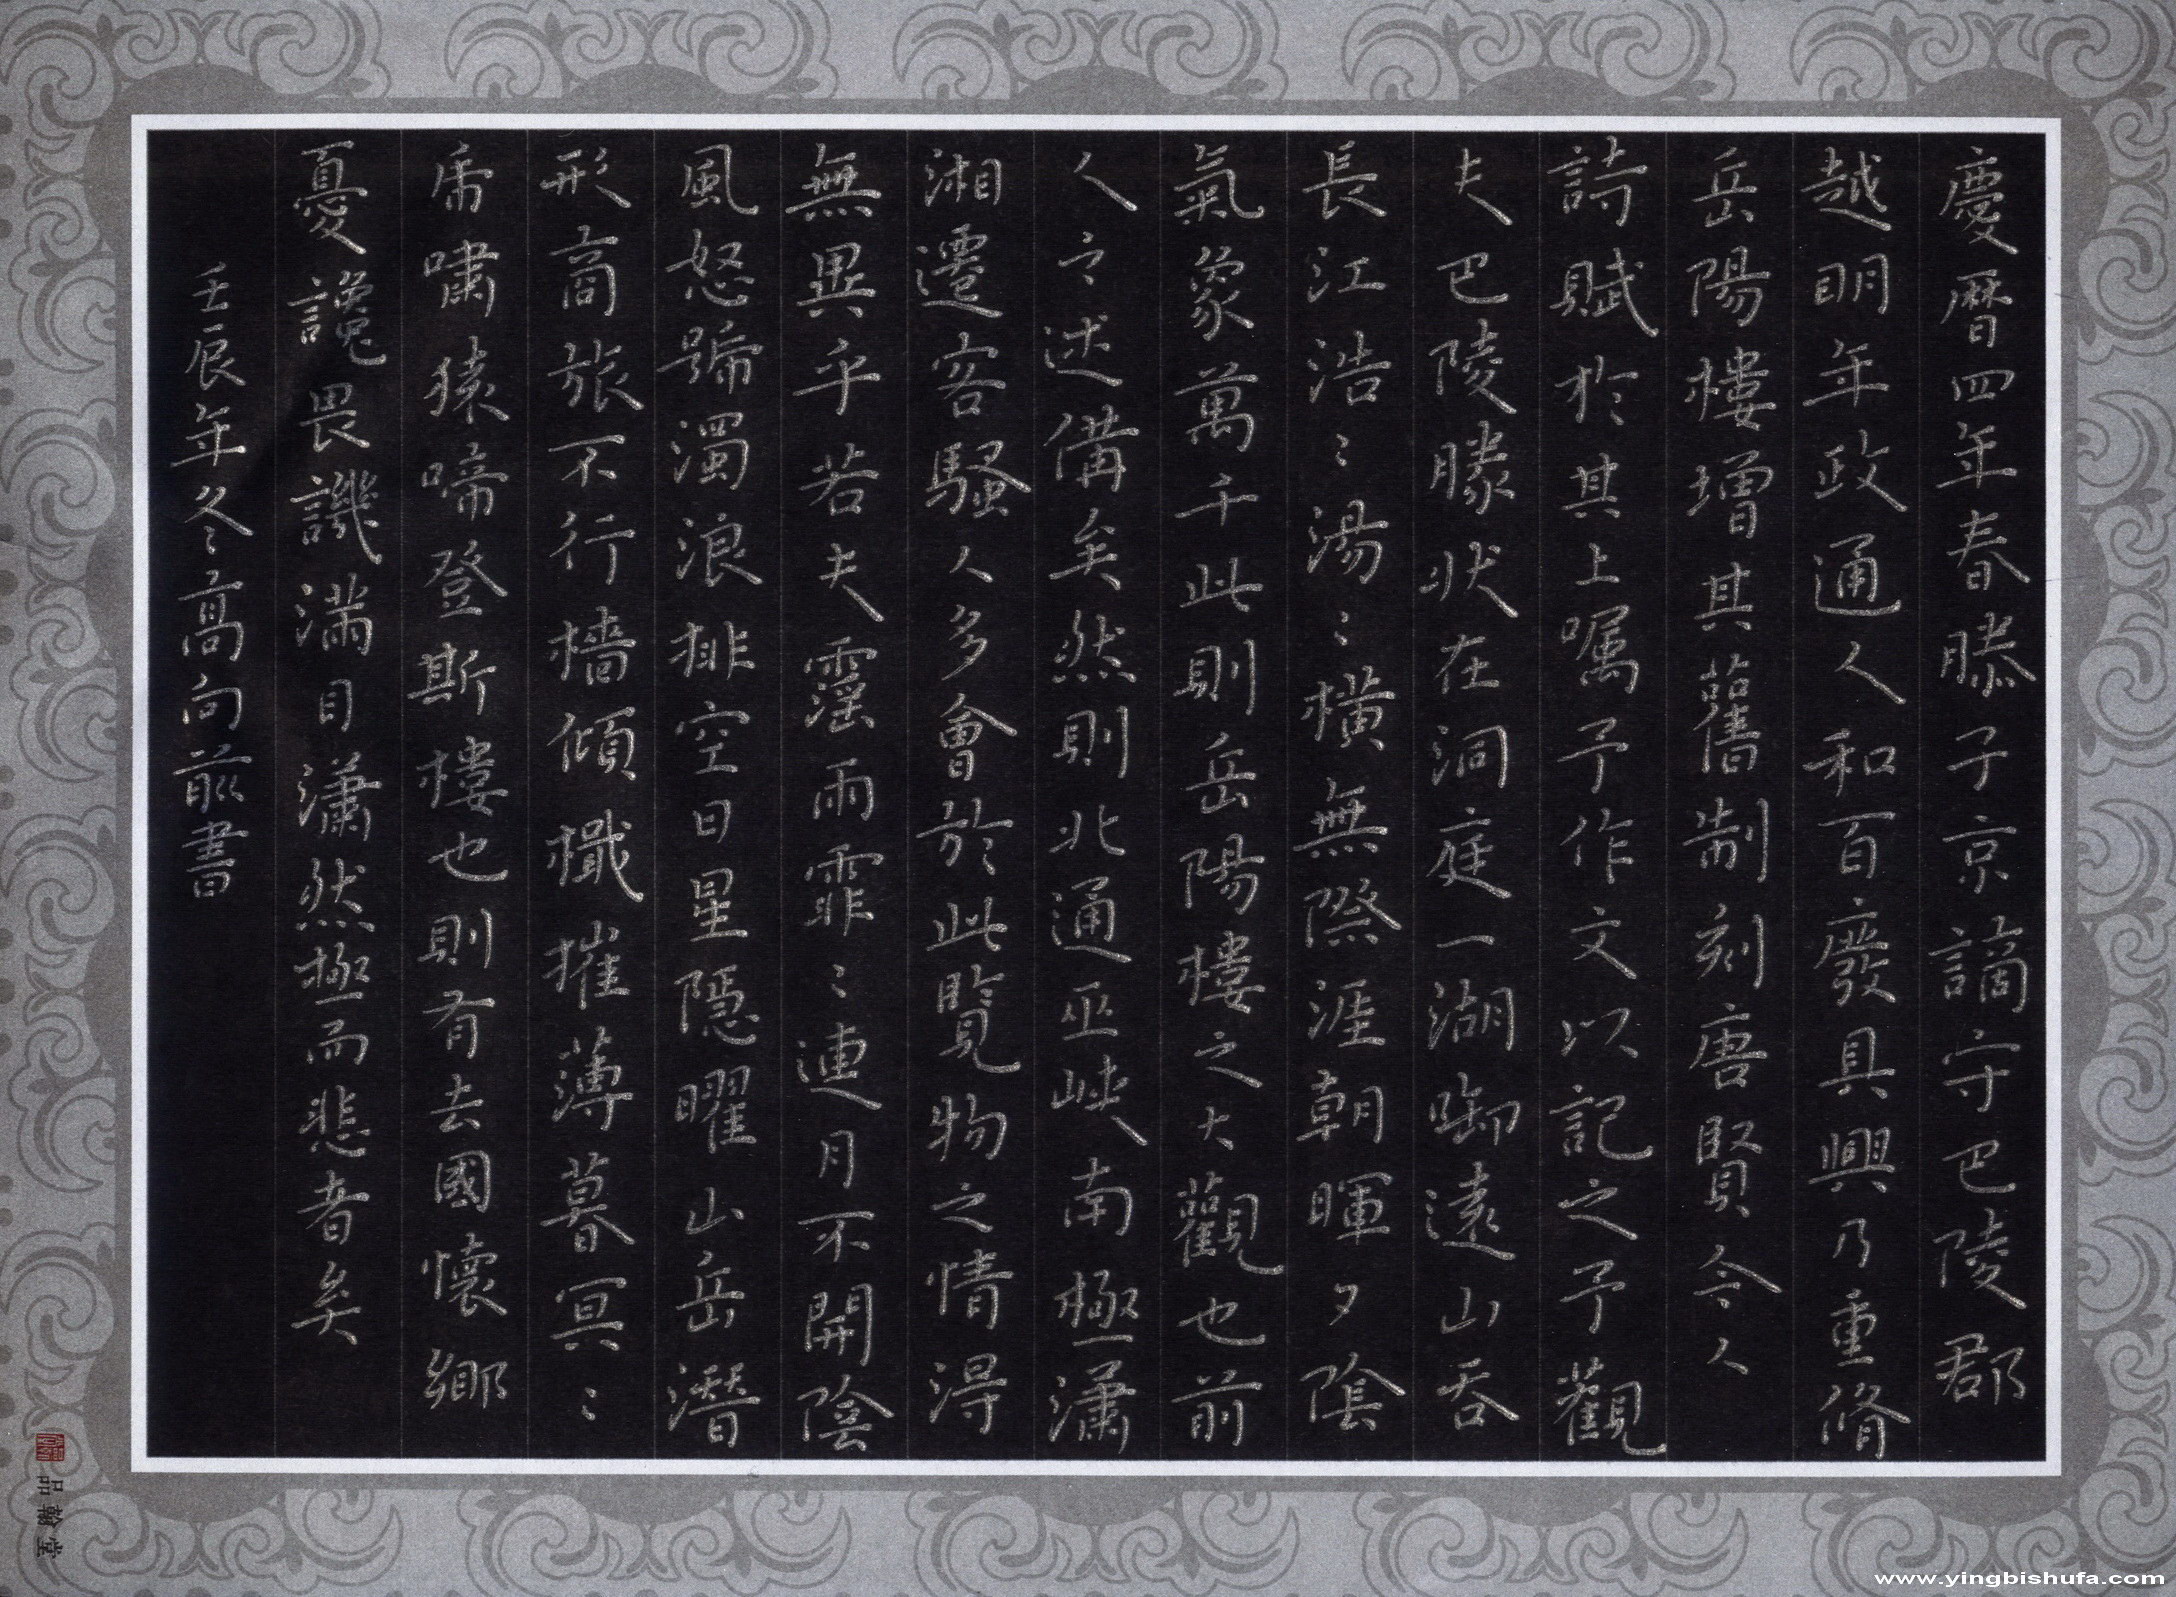 慶曆四年春滕子京謫守巴陵郡
越明年政通人和百廢具興乃重脩
岳陽樓增其舊制刻唐賢今人
詩賦於其上嘱予作文以記之予觀
夫巴陵勝狀在洞庭一湖啣遠山吞
長江浩〻湯〻橫無際涯朝暉夕陰
氣象萬千此則岳陽樓之大觀也前
人之述備矣然則北通巫峽南極瀟
湘遷客騷人多會於此覽物之情得
無異乎若夫霪雨霏〻連月不開陰
風怒號濁浪排空日星隱曜山岳潛
形商旅不行檣傾檝摧薄暮冥〻
虎嘯猿啼登斯樓也則有去國懷鄉
憂讒畏譏滿目瀟然極而悲者矣
壬辰年冬高向前書
品翰堂
www.yingbishufa.com